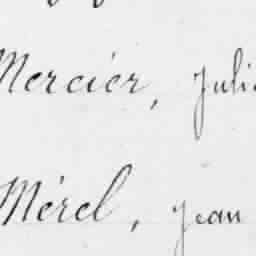 Mercier, Juli
Mérel, Jean